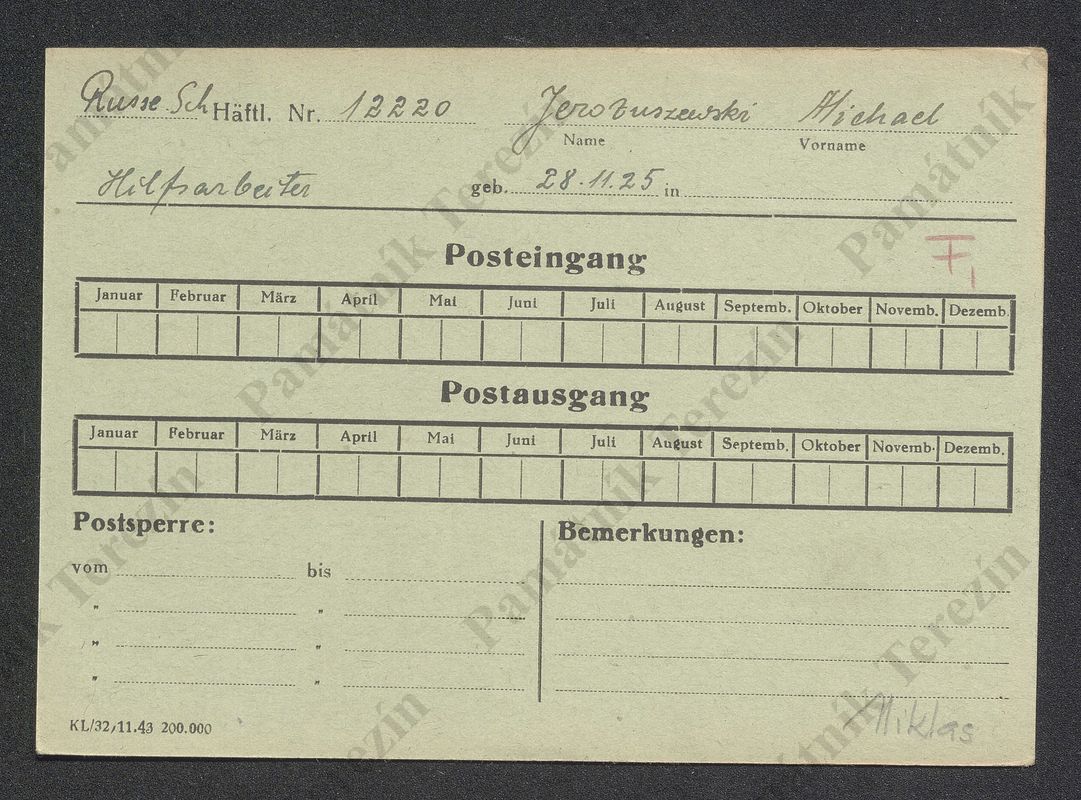 Russe Sch Häftl. Nr. 12220 Jerobuszewski Michael
Name Vorname
Hilfsarbeiter geb. 28.11.25 in
F1
Posteingang
Januar Februar März April Mai Juni Juli August Septemb. Oktober Novemb. Dezemb.
Postausgang
Januar Februar März April Mai Juni Juli August Septemb. Oktober Novemb. Dezemb.
Postsperre: Bemerkungen:
vom bis
" "
" "
" "
KL/32/11.43 200.000
Miklas
Památník Terezín